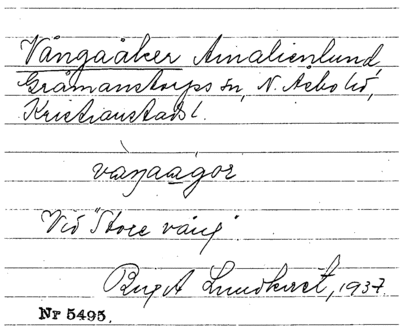 Vångaåker Amalienlund,
Gråmanstorps sn, N. Åsbo hd,
Kristianstads l.
Vid "Store vång"
Lundkvist, 1937.
Nr 5495.